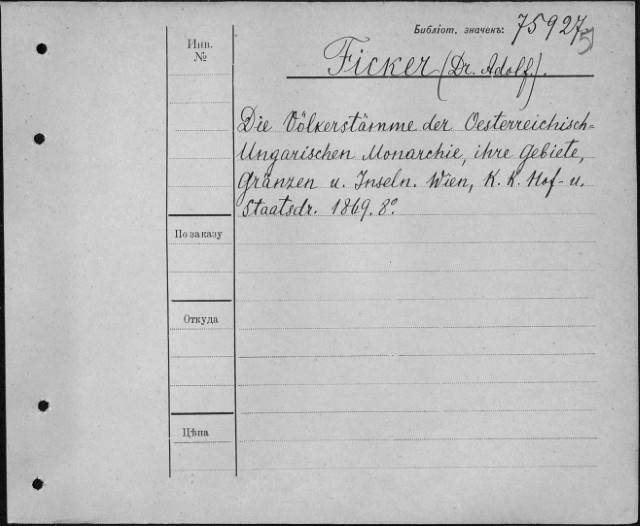 Библіот. значекъ: 75927
5
Инв.
№
Ficker (Dr. Adolf).
Die Völkerstämme der Oesterreichisch=
Ungarischen Monarchie, ihre Gebiete,
Gränzen u. Inseln. Wien, K. K. Hof- u.
Staatsdr. 1869. 8º.
По заказу
Откуда
Цѣна